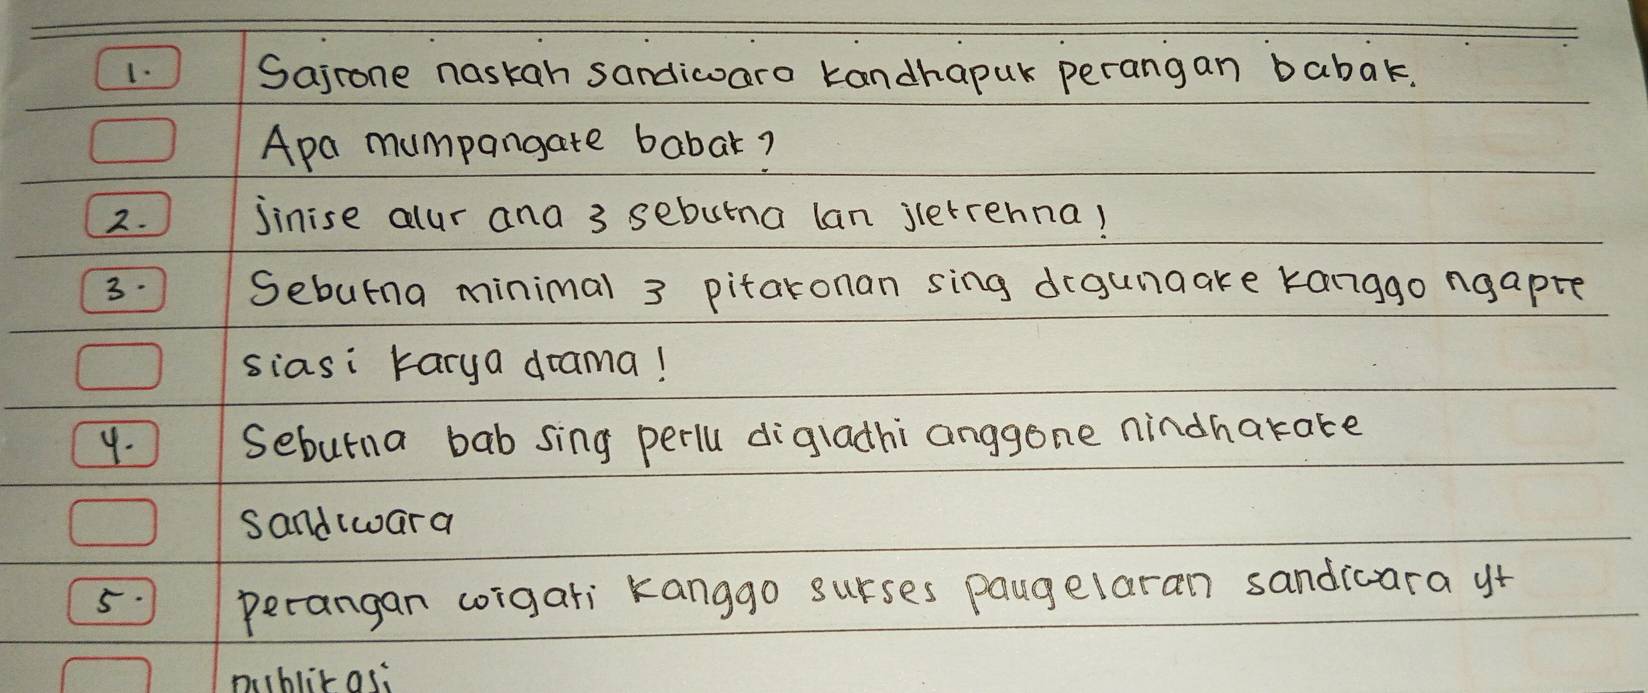 1. Sajrone naskah sandiwara kandhapuk perangan babak.
Apa mumpangate babak?
2. Jinise alur ana 3 sebutna lan jletrehna!
3. Sebutna minimal 3 pitakonan sing digunaake kanggo ngapre
siasi karya drama!
4. Sebutna bab sing perlu digladhi anggone nindhakake
sandiwara
5. perangan wigati kanggo sukses paugelaran sandiwara yt
publikasi